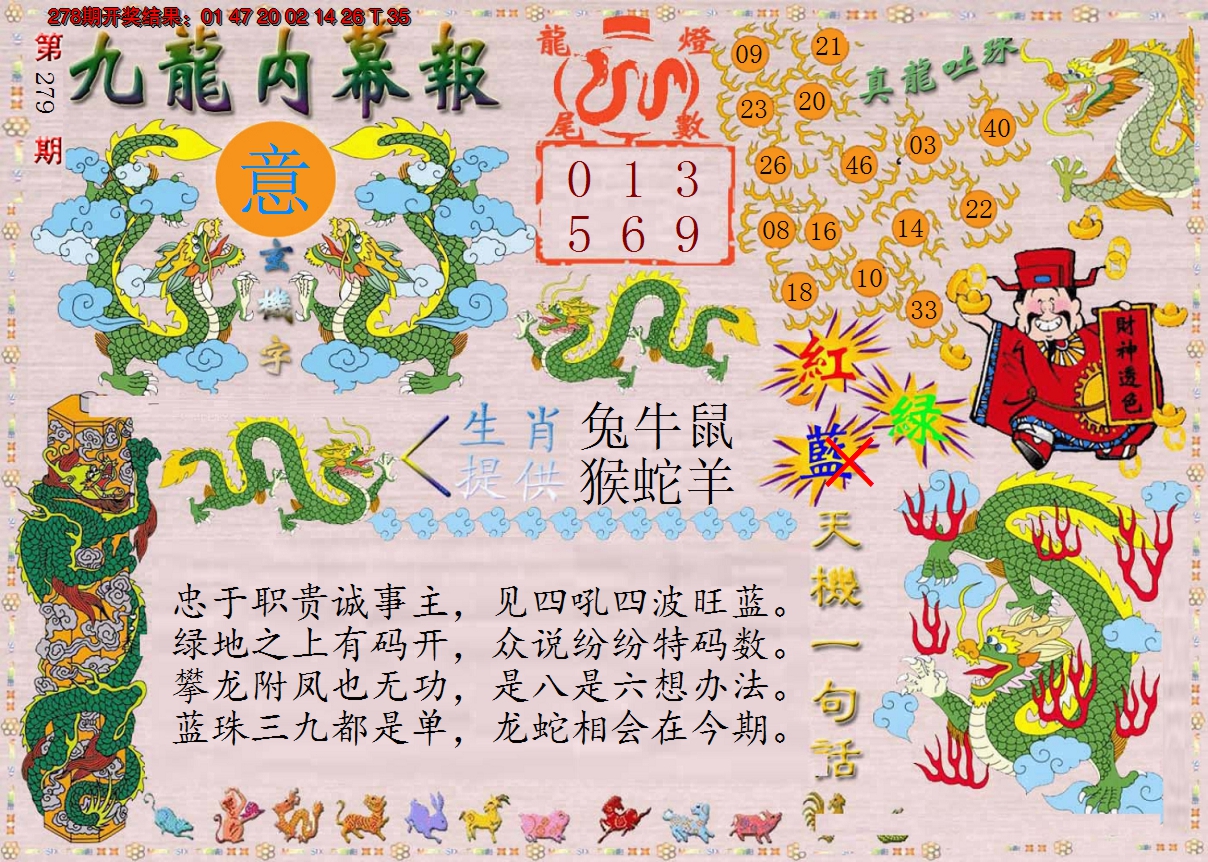 278期开奖结果：01 47 20 02 14 26 T 35
第279期
九龍内幕報
意
玄機字
龍燈尾數
0 1 3
5 6 9
真龍吐珠
09 21
23 20
26 46 03 40
08 16 14 22
18 10 33
財神透色
紅
绿
藍
生肖提供
兔牛鼠
猴蛇羊
天機一句話
忠于职贵诚事主，见四吼四波旺蓝。
绿地之上有码开，众说纷纷特码数。
攀龙附凤也无功，是八是六想办法。
蓝珠三九都是单，龙蛇相会在今期。